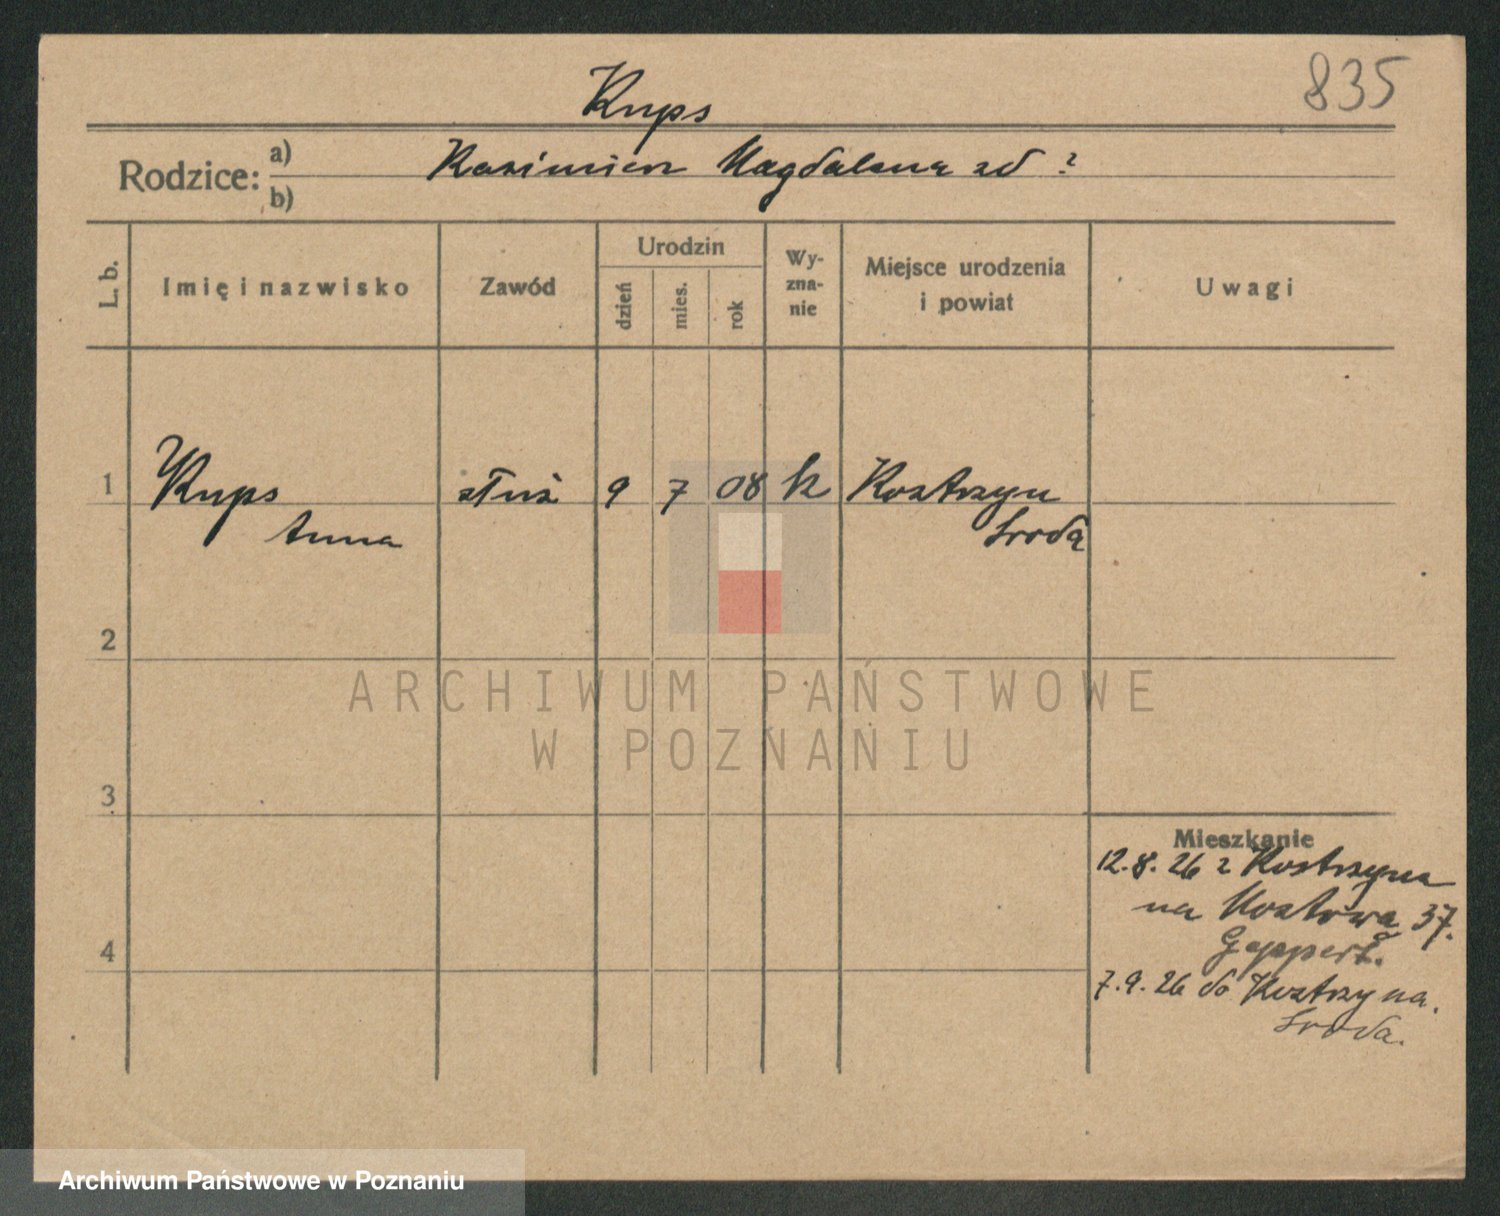 835
Kups
Rodzice: a) b)
Kazimierz Magdalena zd ?
L. b.
Imię i nazwisko
Zawód
Urodzin
dzień
mies.
rok
Wy-
zna-
nie
Miejsce urodzenia
i powiat
Uwagi
1 Kups służ 9 7 08 k Kostrzyn
Anna Środa
2
3
4
Mieszkanie
12.8.26 z Kostrzyna
na Mostową 37.
Geppert.
7.9.26 do Kostrzyna.
Środa.
ARCHIWUM PAŃSTWOWE
W POZNANIU
Archiwum Państwowe w Poznaniu